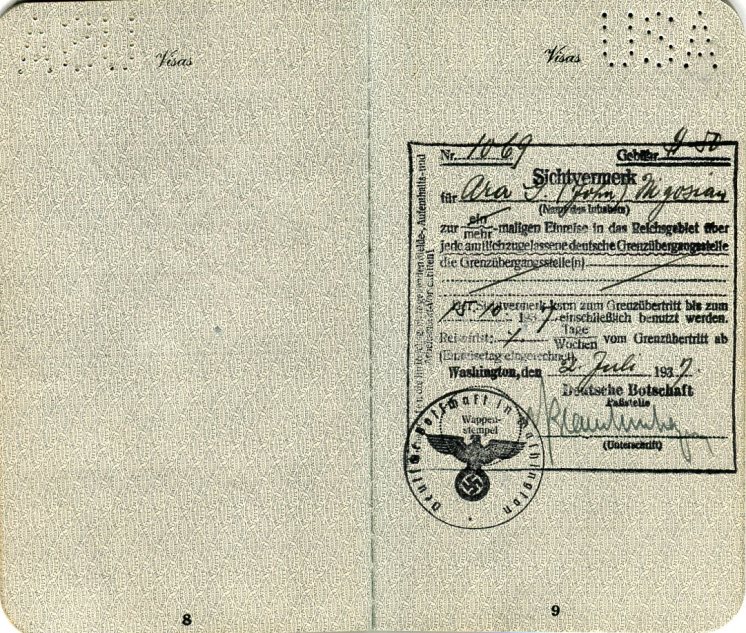 USA
Visas
8
Visas
USA
Nr. 1069 Gebühr
Sichtvermerk
für Ara (John)
(Name des Inhabers)
zur ein/mehr-maligen Einreise in das Reichsgebiet über
jede amtlich zugelassene deutsche Grenzübergangsstelle
die Grenzübergangsstelle(n)
Der Sichtvermerk kann zum Grenzübertritt bis zum
15. 10. 1937 einschließlich benutzt werden.
Reisefrist: Tage
Wochen vom Grenzübertritt ab
(Einreisetag eingerechnet).
Washington, den 2. Juli 1937.
Deutsche Botschaft
Paßstelle
(Unterschrift)
Wappen-
stempel
Deutsche Botschaft in Washington
9